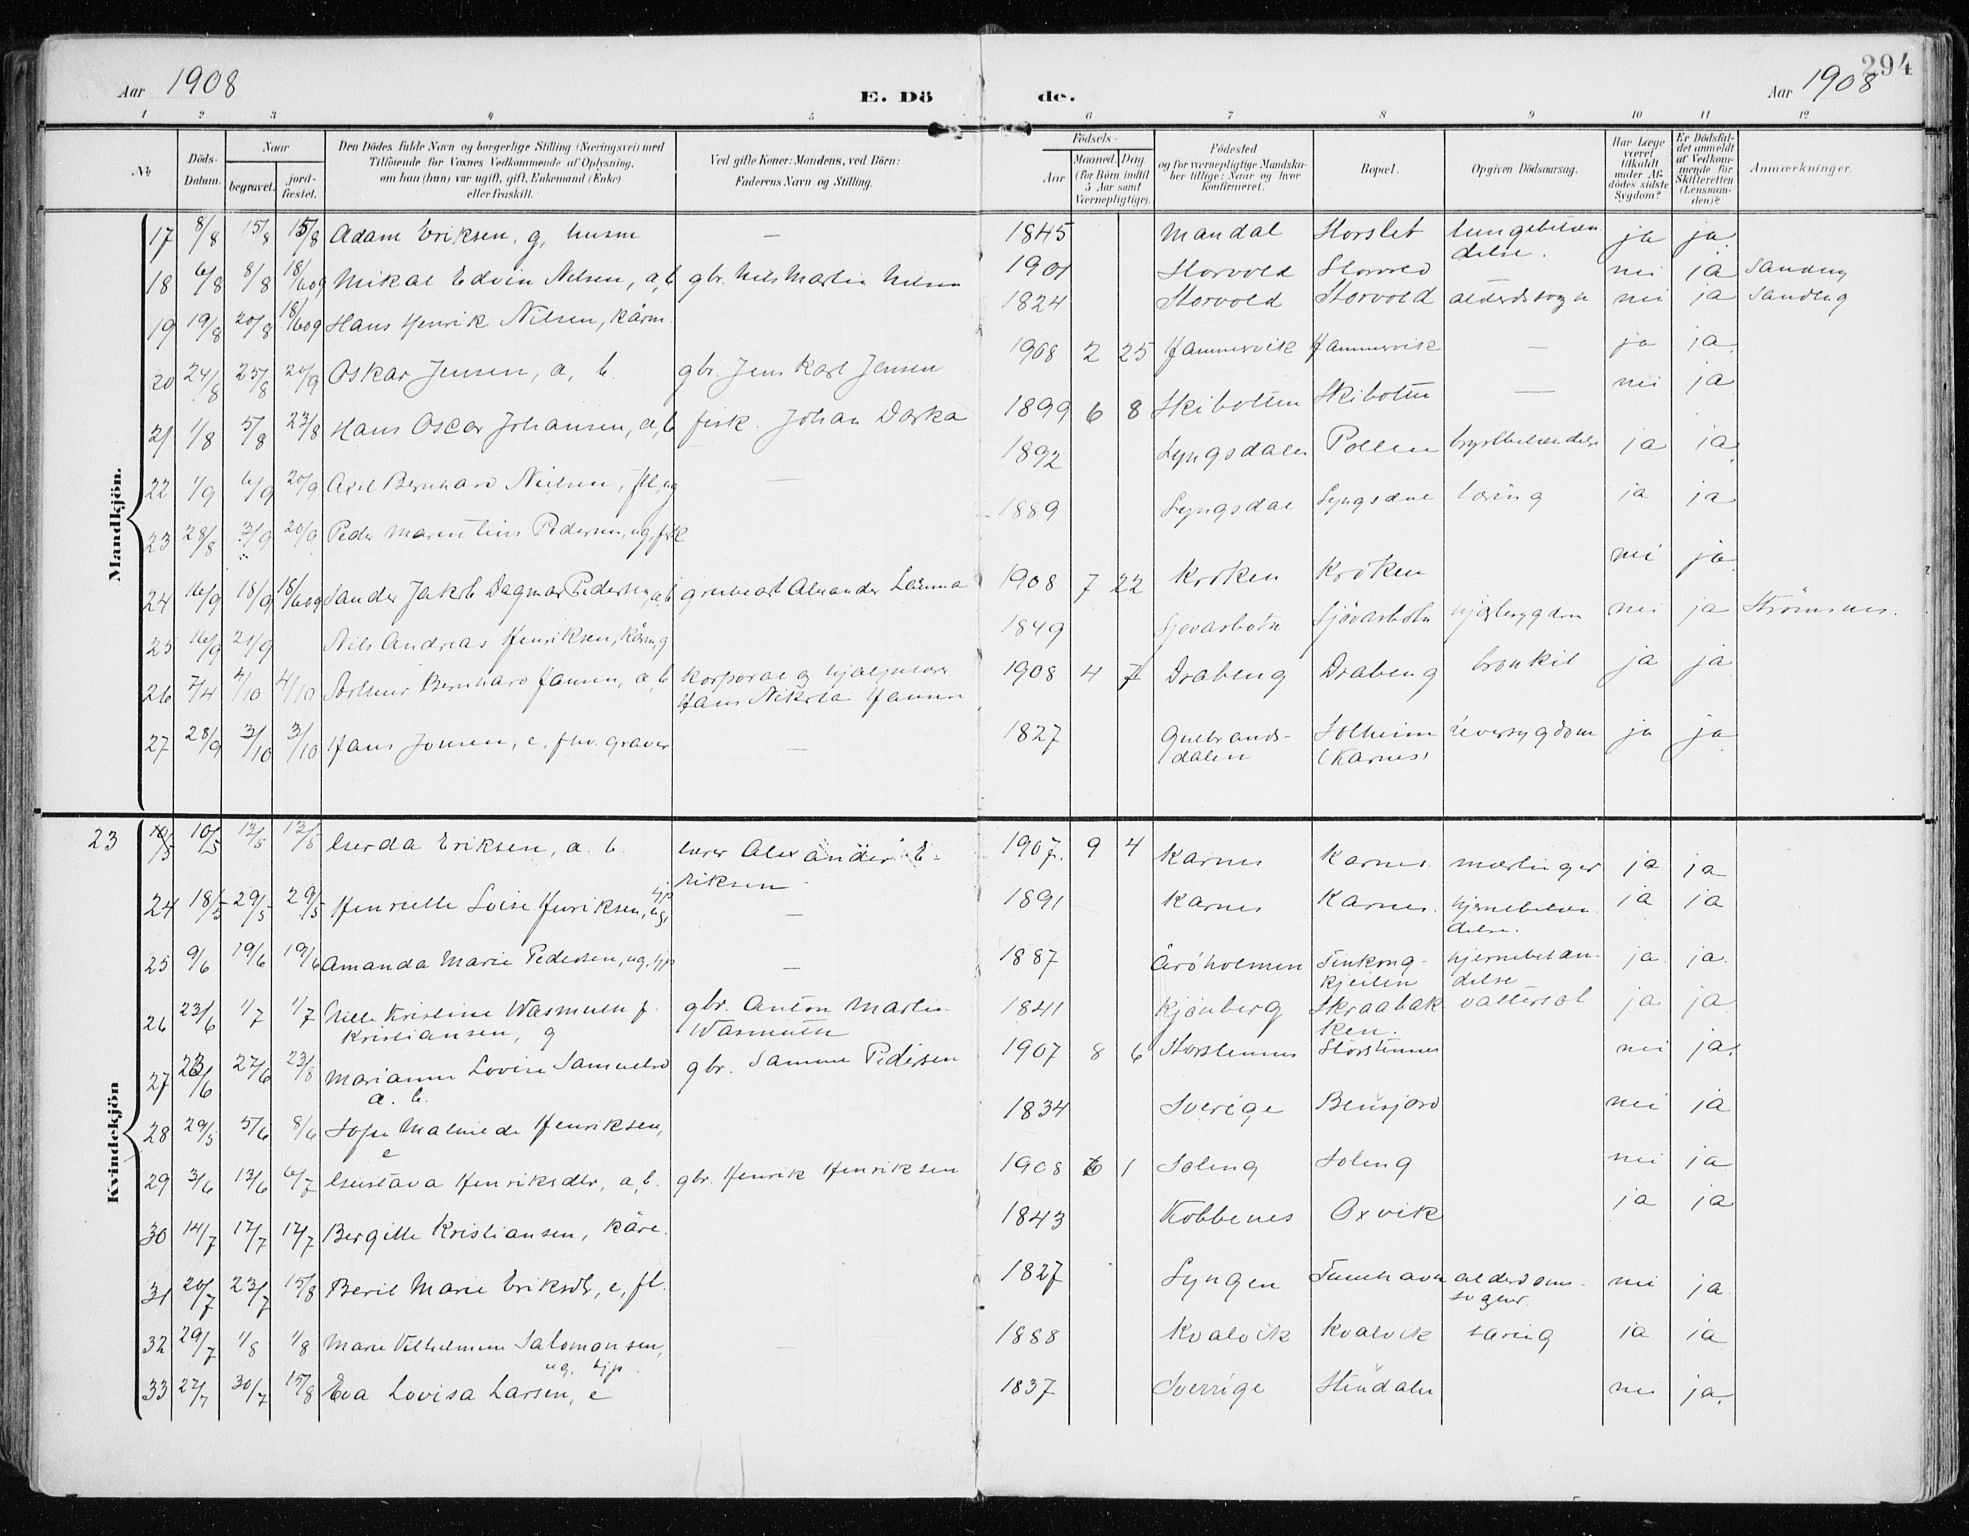 294
Aar 1908
E. Dö
de.
Aar 1908
1 2 3 4 5 6 7 8 9 10 11 12
№
Döds-
Datum.
Naar
begravet.
jord-
fæstet.
Den Dödes fulde Navn og borgerlige Stilling (Næringsvei) med
Tilföiende for Voxnes Vedkommende af Oplysning,
om han (hun) var ugift, gift, Enkemand (Enke)
eller fraskilt.
Ved gifte Koner: Mandens, ved Börn:
Faderens Navn og Stilling.
Födsels-
Aar
Maaned. Dag.
(for Börn indtil
5 Aar samt
Værnepligtige).
Födested
og for værnepligtige Mandska-
ber tillige: Naar og hvor
konfirmeret.
Bopæl.
Opgiven Dödsaarsag.
Har Læge
været
tilkaldt
under Af-
dödes sidste
Sygdom?
Er Dödsfal-
det anmeldt
af Vedkom-
mende for
Skifteretten
(Lensman-
den)?
Anmærkninger.
Mandkjön.
17 8/8 15/8 15/8 Adam Eriksen, g, husm — 1845 Mandal Horslet lungebetæn
delse. ja ja.
18 6/8 8/8 18/6 09 Mikal Edvin Nilsen, a, b gbr. Nils Martin Nilsen 1901 Storvold Storvold nei ja Sandeng
19 19/8 20/8 18/6 09 Hans Henrik Nilsen, kårm. 1824 Storvold Storvold nei ja Sandeng
20 24/8 25/8 20/9 Oskar Jensen, a, b. gbr. Jens Karl Jensen 1908 2 25 Hammervik Hammervik — ja ja.
21 1/8 5/8 23/8 Hans Oscar Johansen, a, b fisk. Johan Darka 1899 6 8 Skibotten Skibotten — nei ja
22 1/9 6/9 20/9 Axel Bernhard Nilsen, fl, ug — 1892 Lyngsdalen Pollen brystbetændelse ja ja.
23 28/8 3/9 20/9 Peder Marentius Pedersen, ug, fisk 1889 Lyngsdal Lyngsdal tæring ja ja
24 16/9 18/9 18/6 09 Sander Jakob Dagmar Pedersen, a, b grubearb Alexander 1908 7 22 Kroken Kroken nei ja
25 16/9 21/9 Nils Andreas Henriksen, kårm, g 1849 Sjøvasbotn Sjøvasbotn nei ja Strömsnes.
26 7/4 4/10 4/10 Bernhard Hansen, a, b korporal g
Hans Nikolai Hansen 1908 4 7 Drabeng Drabeng bronkit ja ja
27 28/9 3/10 3/10 Hans Jonsen, e, fhv. graver — 1827 Gulbrands-
dalen Solheim
(Karnes) leversygdom ja ja
Kvindekjön
23 10/5 10/5 12/5 12/5 Gerda Eriksen, a. b. lærer Alexander E-
riksen 1907. 9 4 Karnes Karnes. mæslinger ja ja
24 18/5 29/5 29/5 Henriette Lovise Henriksen, tjp
ug. — 1891 Karnes Karnes. hjernebetæn
delse. ja ja
25 9/6 19/6 19/6 Amanda Marie Pedersen, ug, tjp — 1887 Årøholmen
kjeilen hjernebetæn-
delse ja ja.
26 23/6 1/7 1/7 Kristine Wasmuth f.
Kristiansen, g gbr. Anton Martin
Wasmuth 1841 Kjønberg Skraabak
ken. vattersot ja ja
27 23/6 27/6 23/8 Marianne Lovise Samuelsd
a. b. gbr. Samuel Pedersen 1907 8 6 Storstennes Storstennes nei ja.
28 29/5 5/6 8/6 Sofie Mathilde Henriksen,
e 1834 Sverige Bensjord nei ja
29 3/6 13/6 6/7 Gustava Henriksdtr, a, b. gbr. Henrik Henriksen 1908 6 1 Soleng Soleng nei ja
30 14/7 17/7 17/7 Bergitte Kristiansen, kåre. 1843 Kobbenes Oxvik ja ja
31 20/7 23/7 15/8 Berit Marie Eriksdtr, e, fl. 1827 Lyngen alderdoms-
ja.
32 29/7 1/8 1/8 Marie Vilhelmine Salomonsen,
ug. tjp. — 1888 Kvalvik Kvalvik tæring ja ja
33 27/7 30/7 15/8 Eva Lovisa Larsen, e 1837 Sverrige Stendalen nei ja.